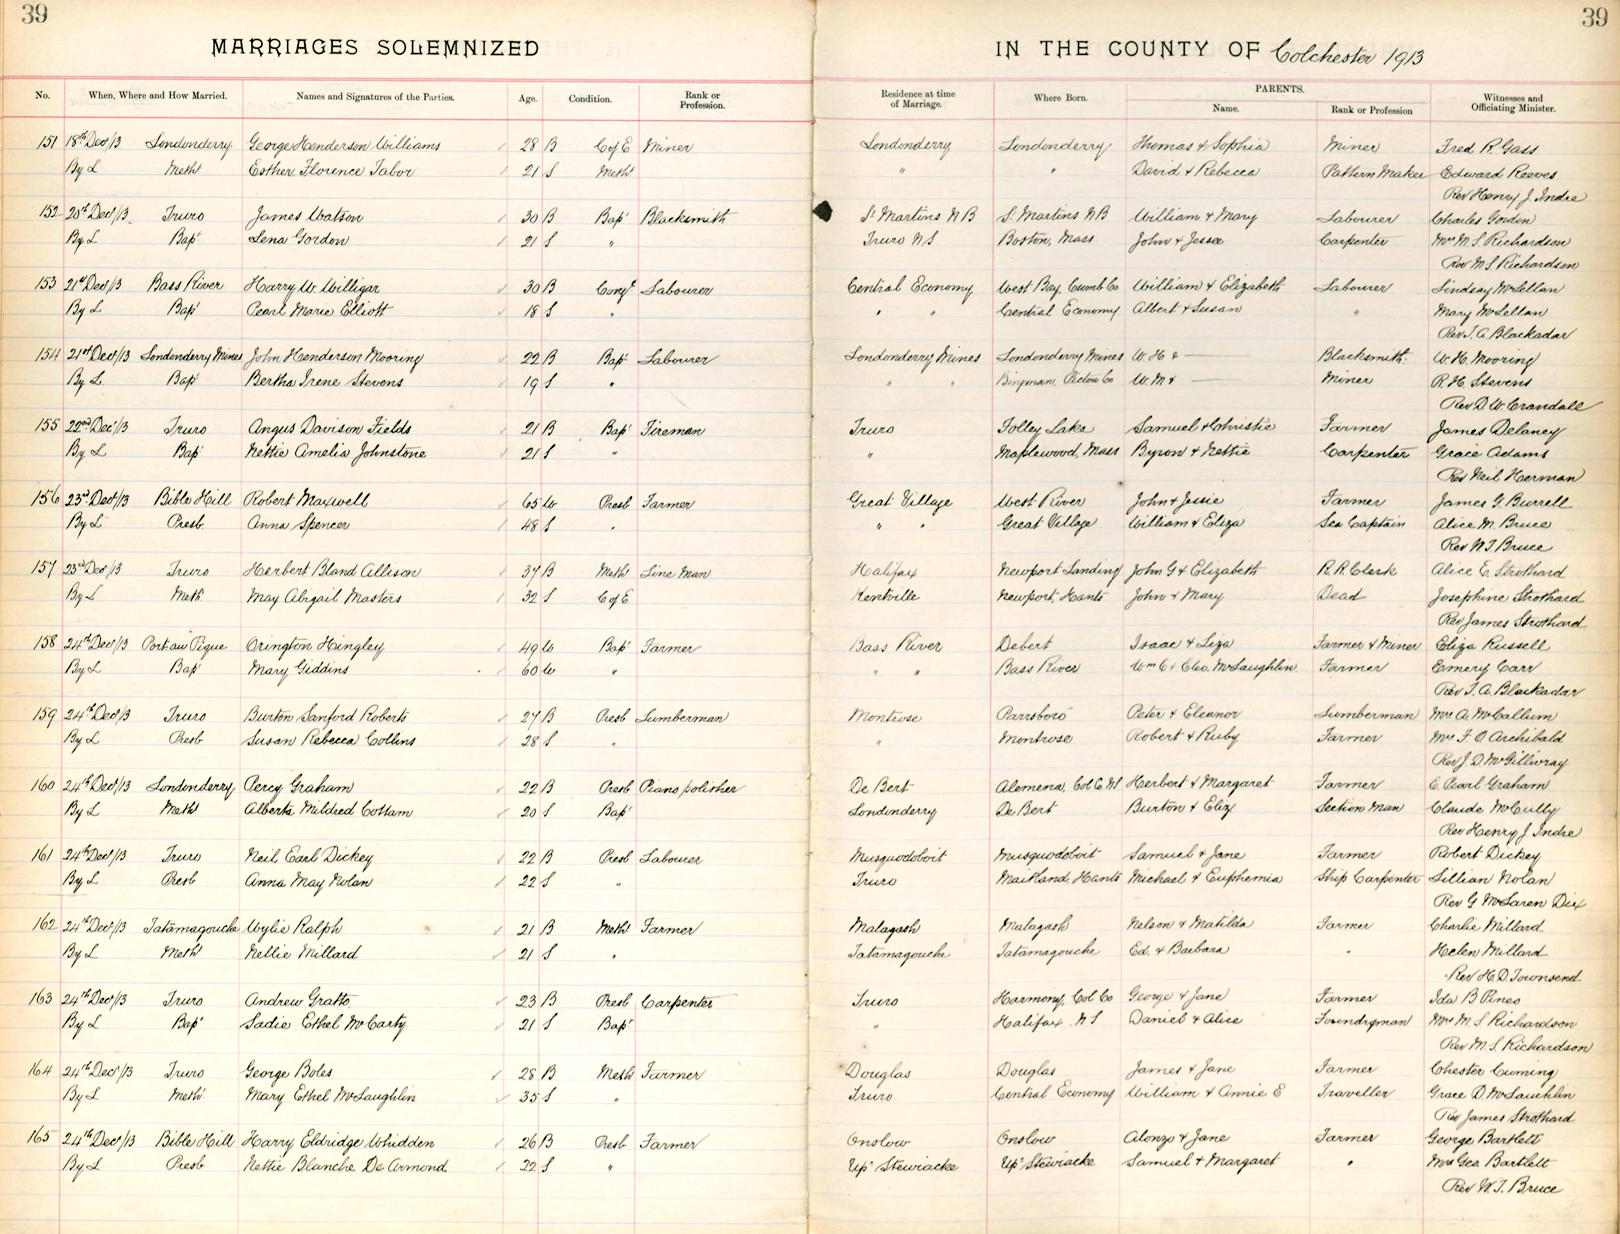 39
39
MARRIAGES SOLEMNIZED IN THE COUNTY OF Colchester 1913
No. When, Where and How Married. Names and Signatures of the Parties. Age. Condition. Rank or Profession. Residence at time of Marriage. Where Born. PARENTS. Name. Rank or Profession Witnesses and Officiating Minister.
151 18th Dec/13 Londonderry George Henderson Williams 28 B C of E Miner Londonderry Londonderry Thomas & Sophia Miner Fred R. Gass
By L Meth Esther Florence Tabor 21 S Meth " " David & Rebecca Pattern Maker Edward Reeves
Rev Henry J Indoe
152 20th Dec/13 Truro James Watson 30 B Bap' Blacksmith St Martins N B St Martins N B William & Mary Labourer Charles Gordon
By L Bap' Lena Gordon 21 S " Truro N S Boston, Mass John & Jessie Carpenter Mrs M. S. Richardson
Rev M S Richardson
153 21st Dec/13 Bass River Harry W. Willigar 30 B Cong' Labourer Central Economy West Bay, Cumb Co William & Elizabeth Labourer Lindsay McLellan
By L Bap' Pearl Marie Elliott 18 S " " " Central Economy Albert & Susan " Mary McLellan
Rev T. A. Blackadar
154 21st Dec/13 Londonderry Mines John Henderson Mooring 22 B Bap' Labourer Londonderry Mines Londonderry Mines W. H & — Blacksmith W. H. Mooring
By L. Bap' Bertha Irene Stevens 19 S " " " Pictou Co W. M & — Miner R. H. Stevens
Rev D. W. Crandall
155 22nd Dec/13 Truro Angus Davison Fields 21 B Bap' Fireman Truro Folley Lake Samuel & Christie Farmer James Delaney
By L Bap' Nettie Amelia Johnstone 21 S " " Maplewood, Mass Byron & Nettie Carpenter Grace Adams
Rev Neil Herman
156 23rd Dec/13 Bible Hill Robert Maxwell 65 W Presb Farmer Great Village West River John & Jessie Farmer James G. Burrell
By L Presb Anna Spencer 48 S " " " Great Village William & Eliza Sea Captain Alice M. Bruce
Rev W T Bruce
157 23rd Dec/13 Truro Herbert Bland Allison 37 B Meth Line Man Halifax Newport Landing John G & Elizabeth R. R. Clerk Alice E. Strothard
By L Meth May Abigail Masters 32 S C of E Kentville Newport, Hants John & Mary Dead Josephine Strothard
Rev James Strothard
158 24th Dec/13 Port au Pique Orington Hingley 49 W Bap' Farmer Bass River Debert Isaac & Liza Farmer & Miner Eliza Russell
By L Bap' Mary Giddins 60 W " " " Bass River Wm C & Elea. McLaughlin Farmer Emery Carr
Rev T. A. Blackadar
159 24th Dec/13 Truro Burton Sanford Roberts 27 B Presb Lumberman Montrose Parrsboro Peter & Eleanor Lumberman Mrs A. McCallum
By L Presb Susan Rebecca Collins 28 S " " Montrose Robert & Ruby Farmer Mrs F. O Archibald
Rev J D McGillivray
160 24th Dec/13 Londonderry Percy Graham 22 B Presb Piano polisher De Bert Alemena, Col Co. NS Herbert & Margaret Farmer E. Pearl Graham
By L Meth Alberta Mildred Cottam 20 S Bap' Londonderry De Bert Burton & Eliz Section Man Claude McCully
Rev Henry J Indoe
161 24th Dec/13 Truro Neil Earl Dickey 22 B Presb Labourer Musquodoboit Musquodoboit Samuel & Jane Farmer Robert Dickey
By L Presb Anna May Nolan 22 S " Truro Maitland, Hants Michael & Euphemia Ship Carpenter Lillian Nolan
Rev G McLaren Dix
162 24th Dec/13 Tatamagouche Wylie Ralph 21 B Meth Farmer Malagash Malagash Nelson & Matilda Farmer Charlie Millard
By L Meth Nellie Millard 21 S " Tatamagouche Tatamagouche Ed. & Barbara " Helen Millard
Rev H. D. Townsend
163 24th Dec/13 Truro Andrew Gratto 23 B Presb Carpenter Truro Harmony, Col Co George & Jane Farmer Ida B Pineo
By L Bap' Sadie Ethel McCarty 21 S Bap' " Halifax N S Daniel & Alice Foundryman Mrs M. S Richardson
Rev M. S. Richardson
164 24th Dec/13 Truro George Boles 28 B Meth Farmer Douglas Douglas James & Jane Farmer Chester Cuming
By L Meth Mary Ethel McLaughlin 35 S " Truro Central Economy William & Annie E Traveller Grace D. McLauthlin
Rev James Strothard
165 24th Dec/13 Bible Hill Harry Eldridge Whidden 26 B Presb Farmer Onslow Onslow Alonzo & Jane Farmer George Bartlett
By L Presb Nettie Blanche De Armond 22 S " Up' Stewiacke Up' Stewiacke Samuel & Margaret " Mrs Geo Bartlett
Rev W. T. Bruce